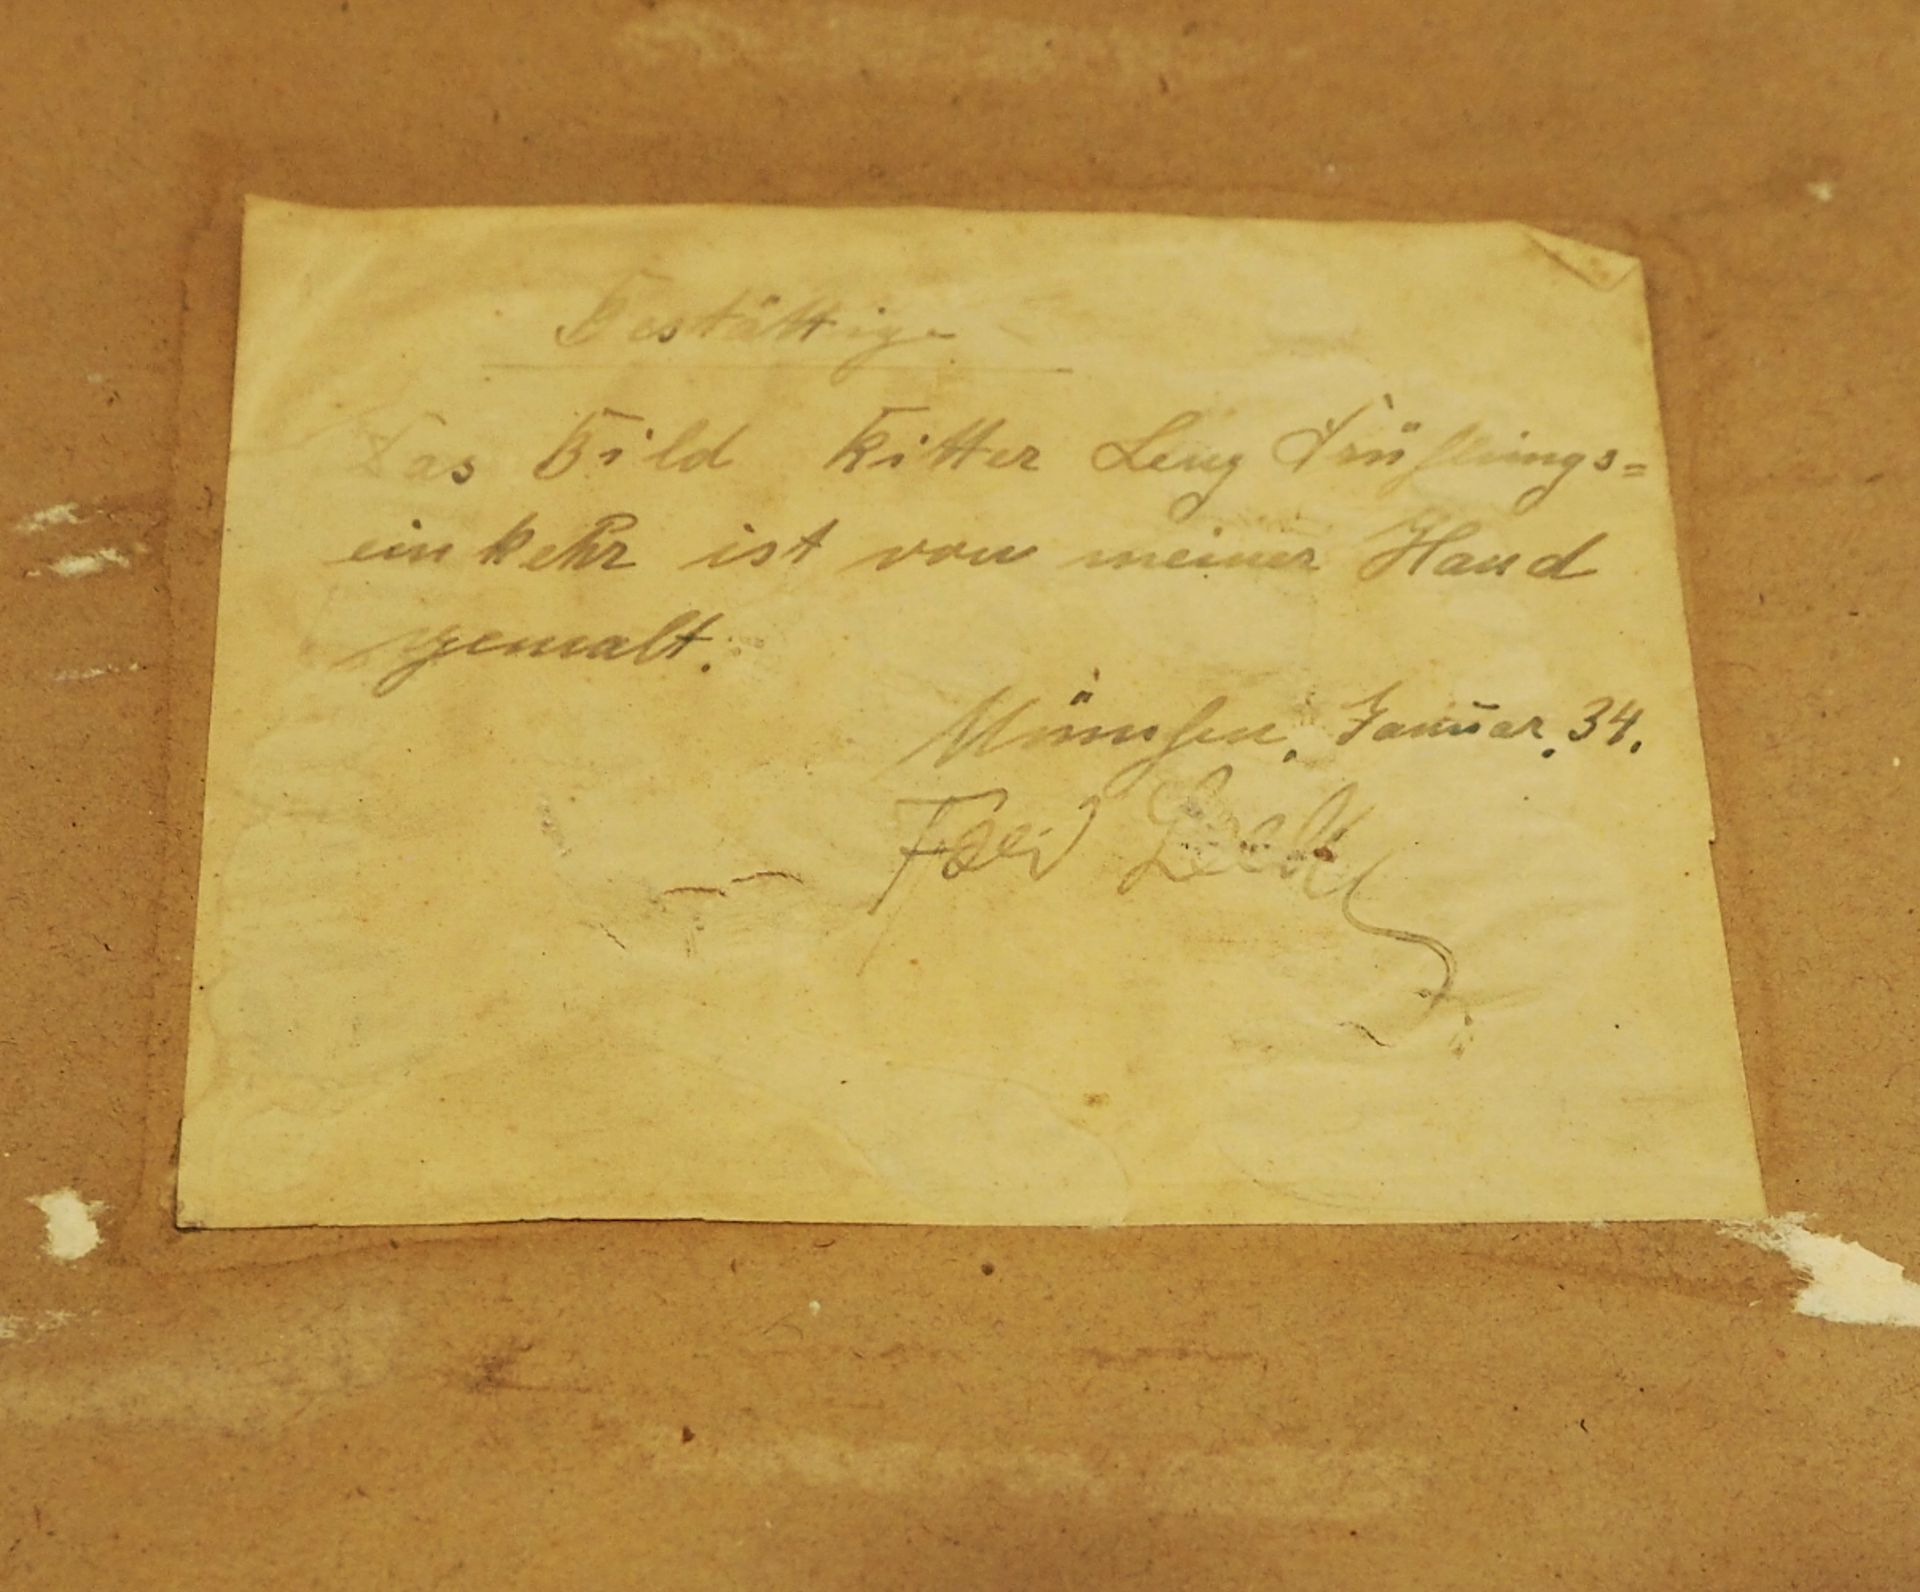 Bestättige
Das Bild Ritter Lenz Frühlings=
einkehr ist von meiner Hand
gemalt.
München, Januar. 34.
Ferd Leeke